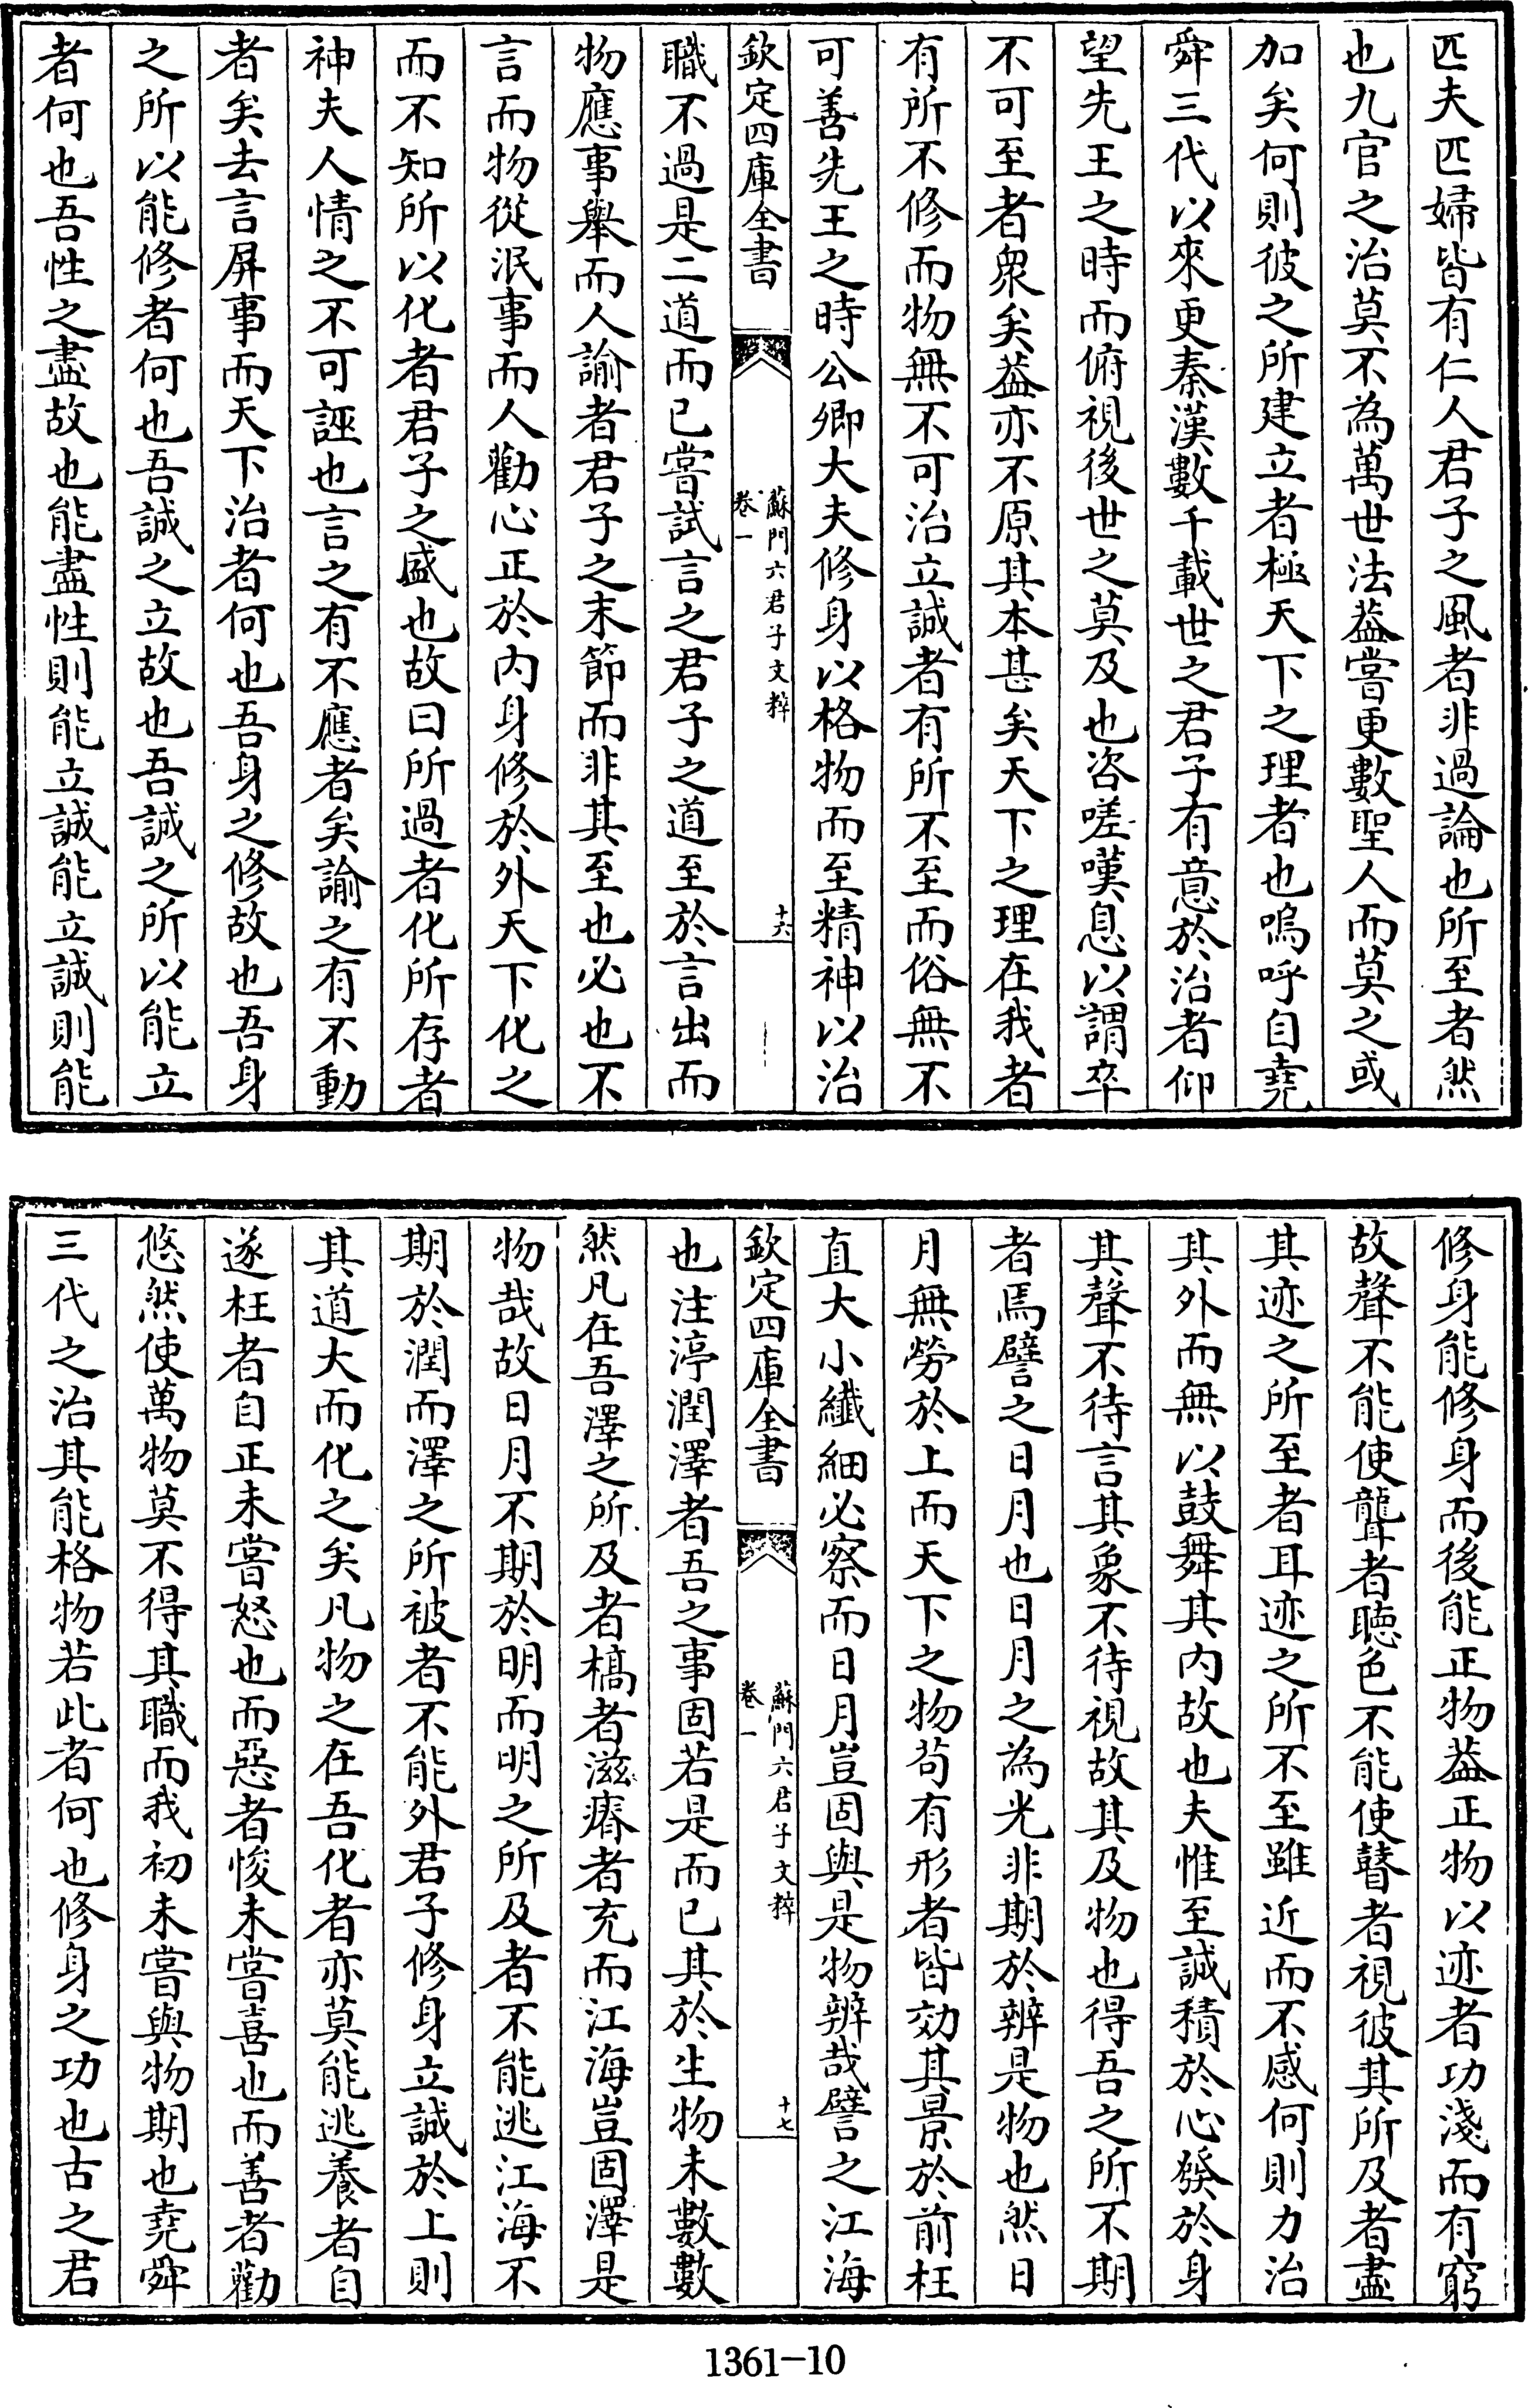 匹夫匹婦皆有仁人君子之風者非過論也所至者然
也九官之治莫不為萬世法葢嘗更數聖人而莫之或
加矣何則彼之所建立者極天下之理者也嗚呼自堯
舜三代以來更秦漢數千載世之君子有意於治者仰
望先王之時而俯視後世之莫及也咨嗟嘆息以謂卒
不可至者衆矣葢亦不原其本甚矣天下之理在我者
有所不修而物無不可治立誠者有所不至而俗無不
可善先王之時公卿大夫修身以格物而至精神以治
欽定四庫全書
蘇門六君子文粹
卷一
十六
職不過是二道而已嘗試言之君子之道至於言出而
物應事舉而人諭者君子之末節而非其至也必也不
言而物從泯事而人勸心正於內身修於外天下化之
而不知所以化者君子之盛也故曰所過者化所存者
神夫人情之不可誣也言之有不應者矣諭之有不動
者矣去言屏事而天下治者何也吾身之修故也吾身
之所以能修者何也吾誠之立故也吾誠之所以能立
者何也吾性之盡故也能盡性則能立誠能立誠則能
修身能修身而後能正物葢正物以迹者功淺而有窮
故聲不能使聾者聽色不能使瞽者視彼其所及者盡
其迹之所至者耳迹之所不至雖近而不感何則力治
其外而無以鼓舞其內故也夫惟至誠積於心發於身
其聲不待言其象不待視故其及物也得吾之所不期
者焉譬之日月也日月之為光非期於辨是物也然日
月無勞於上而天下之物苟有形者皆効其景於前枉
直大小纖細必察而日月豈固與是物辨哉譬之江海
欽定四庫全書
蘇門六君子文粹
卷一
十七
也注渟潤澤者吾之事固若是而已其於生物未數數
然凡在吾澤之所及者槁者滋瘠者充而江海豈固澤是
物哉故日月不期於明而明之所及者不能逃江海不
期於潤而澤之所被者不能外君子修身立誠於上則
其道大而化之矣凡物之在吾化者亦莫能逃養者自
遂枉者自正未嘗怒也而惡者悛未嘗喜也而善者勸
悠然使萬物莫不得其職而我初未嘗與物期也堯舜
三代之治其能格物若此者何也修身之功也古之君
1361-10